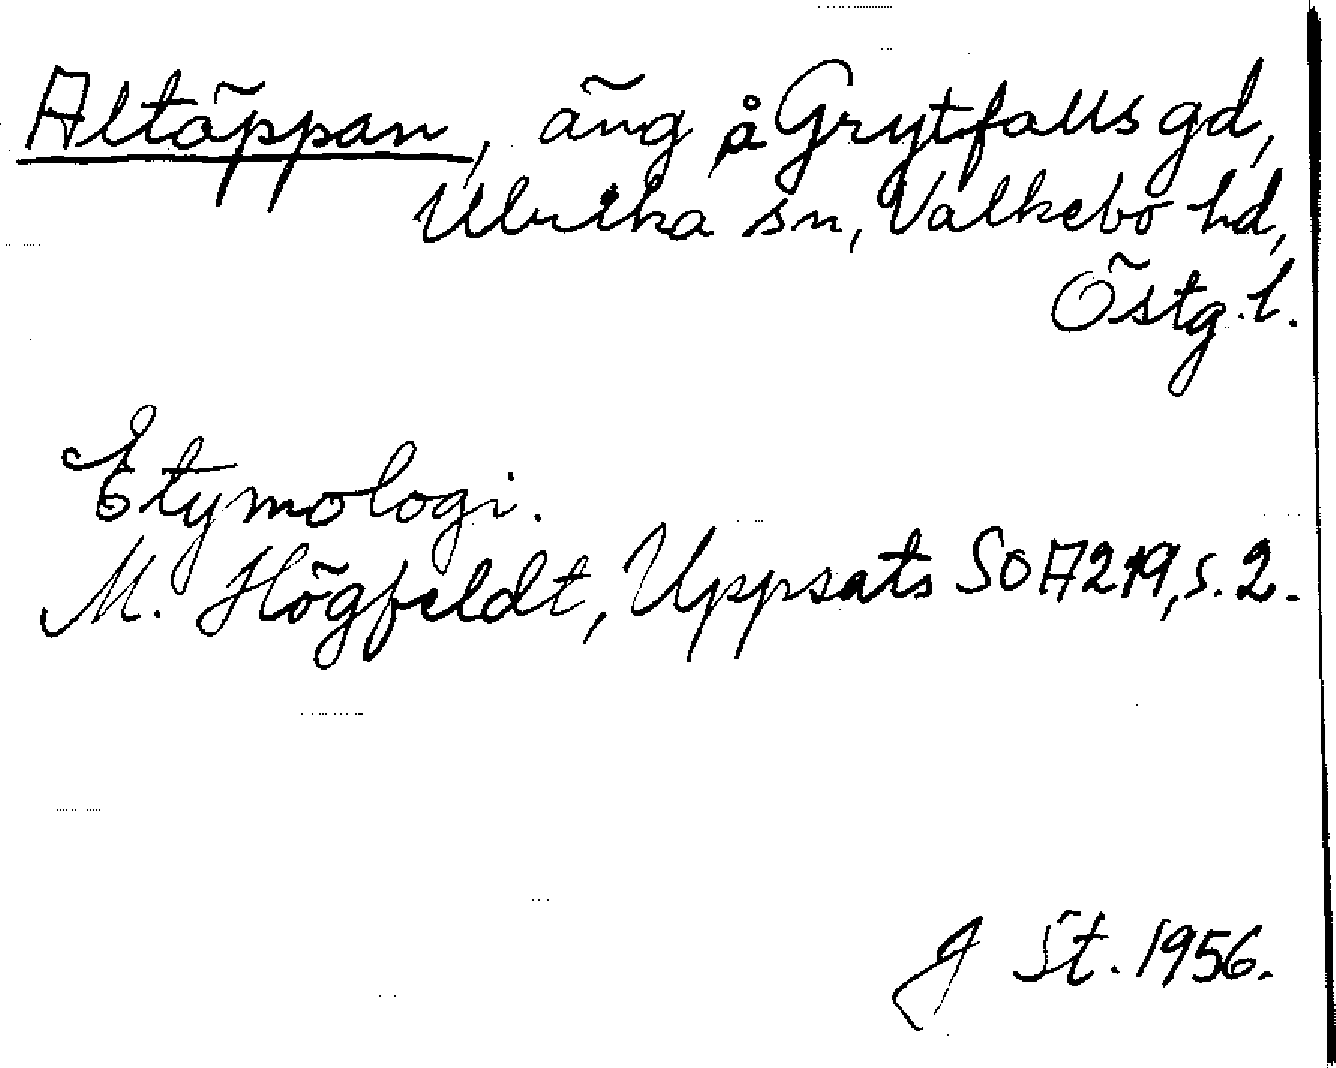 Altäppan, äng på Grytfalls gd,
Ulrika sn, Valkebo hd,
Östg.l.
Etymologi.
M. Högfeldt, Uppsats SOA 219, s. 2.
J St. 1956.